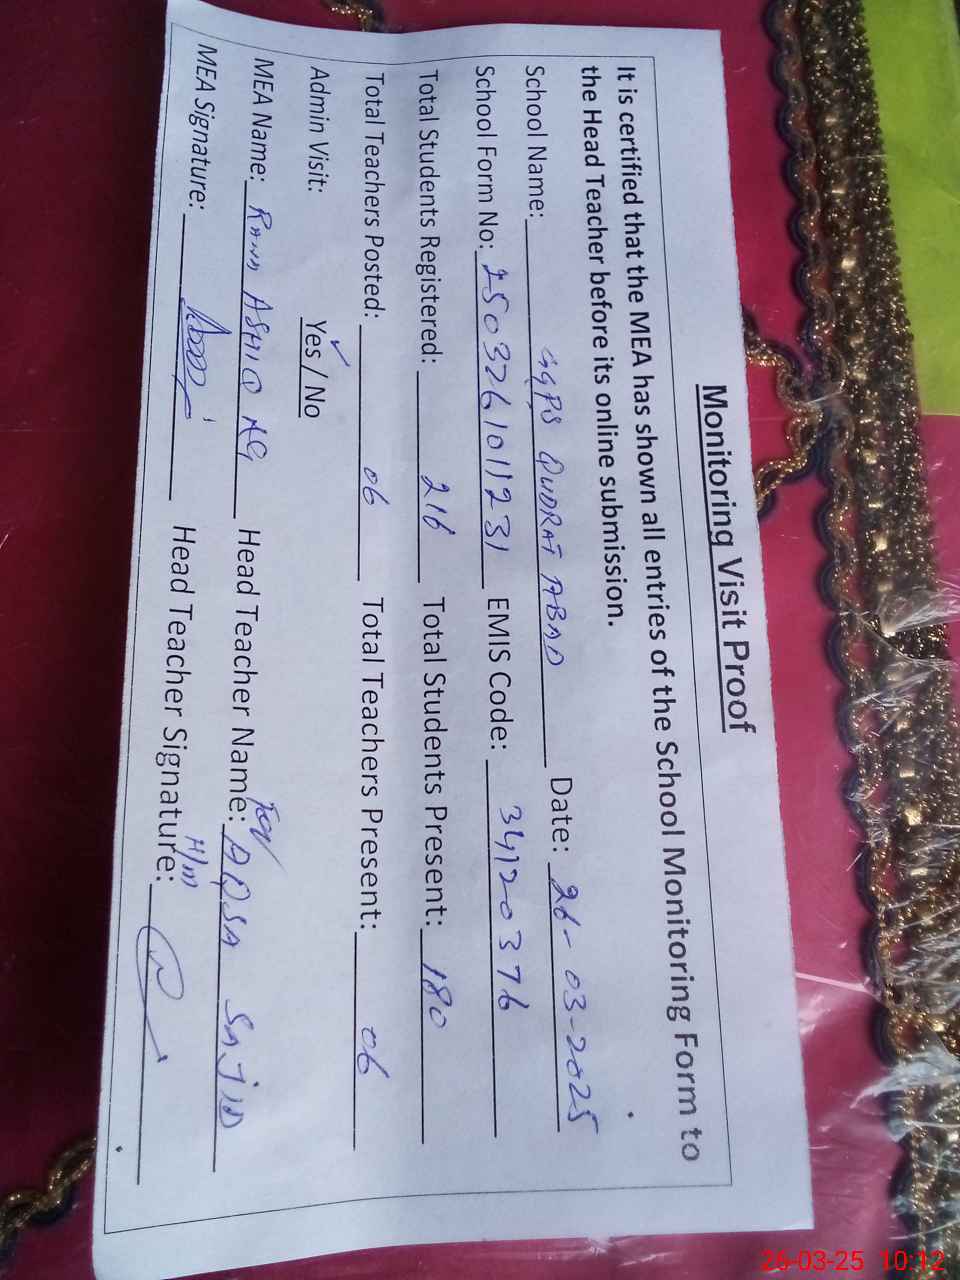 Monitoring Visit Proof
It is certified that the MEA has shown all entries of the School Monitoring Form to
the Head Teacher before its online submission.
School Name: GGPS QUDRAT ABAD Date: 26-03-2025
School Form No: 250326101231 EMIS Code: 34120376
Total Students Registered: 216 Total Students Present: 180
Total Teachers Posted: 06 Total Teachers Present: 06
Admin Visit: Yes / No
For
MEA Name: RANA ASHIQ Head Teacher Name: AQSA SAJID
H/M
MEA Signature: Head Teacher Signature:
26-03-25 10:12